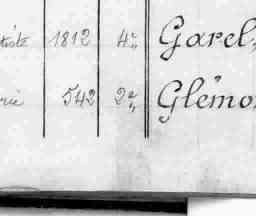 tiste 1812 4e Garel,
rie 542 2e Glémo